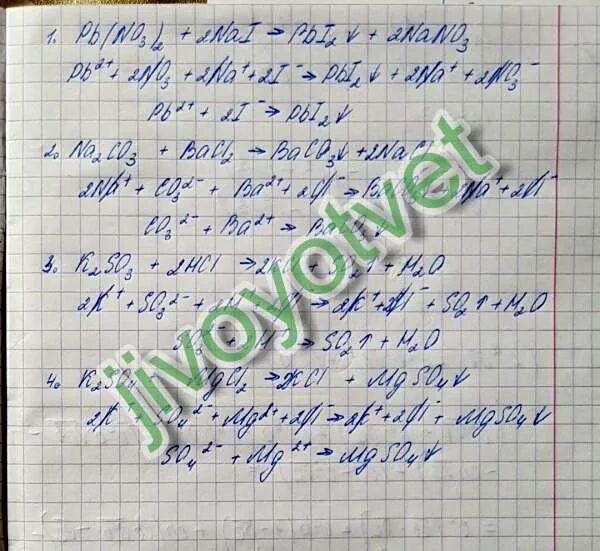 1. Pb(NO3)2 + 2NaI → PbI2↓ + 2NaNO3
Pb²⁺ + 2NO3 + 2Na⁺ + 2I⁻ → PbI2↓ + 2Na⁺ + 2NO3⁻
Pb²⁺ + 2I⁻ → PbI2↓
2. Na2CO3 + BaCl2 → BaCO3↓ + 2NaCl
2Na⁺ + CO3²⁻ + Ba²⁺ + 2Cl⁻ → Na⁺ + 2Cl⁻
CO3²⁻ + Ba²⁺ → BaCO3
3. K2SO3 + 2HCl → 2KCl + SO2↑ + H2O
2K⁺ + SO3²⁻ + → 2K⁺ + 2Cl⁻ + SO2↑ + H2O
→ SO2↑ + H2O
4. K2SO4 MgCl2 → 2KCl + MgSO4↓
2K⁺ SO4²⁻ + Mg²⁺ + 2Cl⁻ → 2K⁺ + 2Cl⁻ + MgSO4↓
SO4²⁻ + Mg²⁺ → MgSO4↓
jivoyotvet